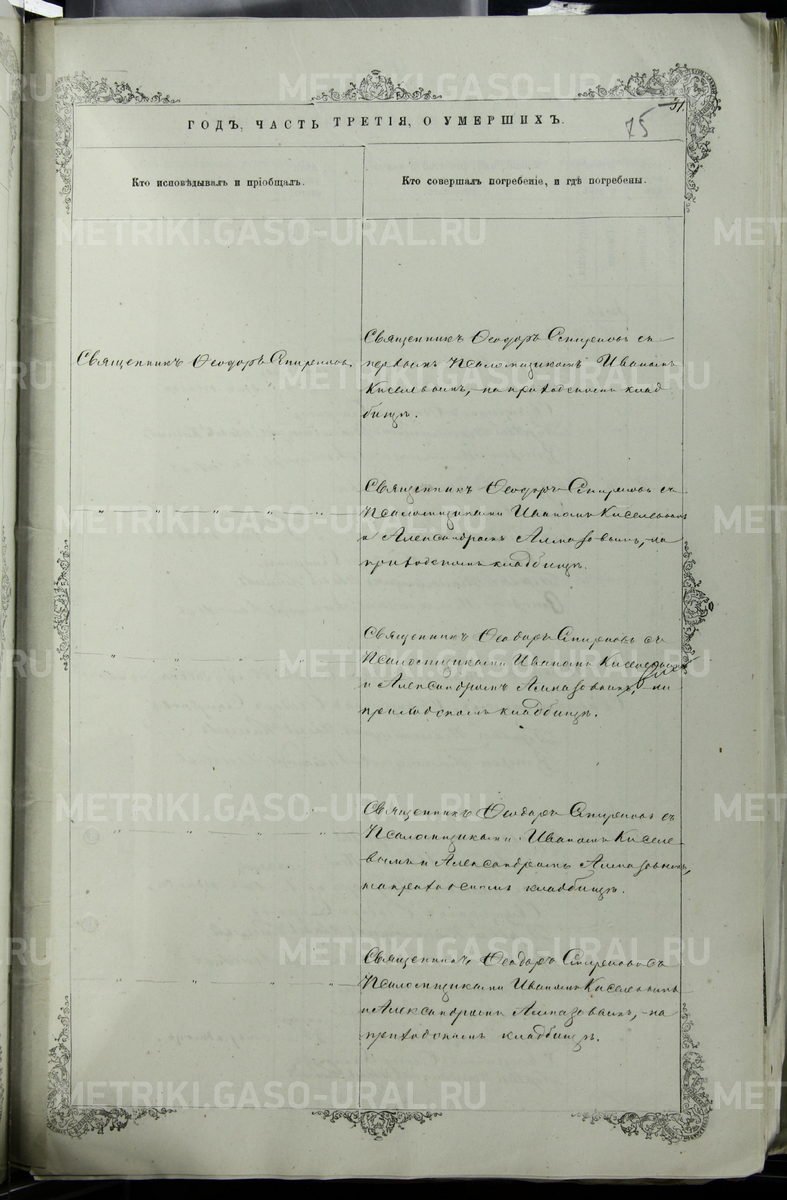 31.
75
ГОДЪ, ЧАСТЬ ТРЕТІЯ, О УМЕРШИХЪ.
Кто исповѣдывалъ и пріобщалъ.
Кто совершалъ погребеніе, и гдѣ погребены.
Священникъ Ѳеодоръ Спиренковъ.
Священникъ Ѳеодоръ Спиренковъ съ
первымъ Псаломщикомъ Иваномъ
Киселевымъ, на приходскомъ клад
бищѣ.
Священникъ Ѳеодоръ Спиренковъ съ
Псаломщиками Иваномъ Киселевымъ
и Александромъ Алмазовымъ, на
приходскомъ кладбищѣ.
Священникъ Ѳеодоръ Спиренковъ съ
Псаломщиками Иваномъ Киселевымъ
и Александромъ Алмазовымъ, на
приходскомъ кладбищѣ.
Священникъ Ѳеодоръ Спиренковъ съ
Псаломщиками Иваномъ Киселе-
вымъ и Александромъ Алмазовымъ,
на приходскомъ кладбищѣ.
Священникъ Ѳеодоръ Спиренковъ съ
Псаломщиками Иваномъ Киселевымъ
и Александромъ Алмазовымъ, на
приходскомъ кладбищѣ.
METRIKI.GASO-URAL.RU